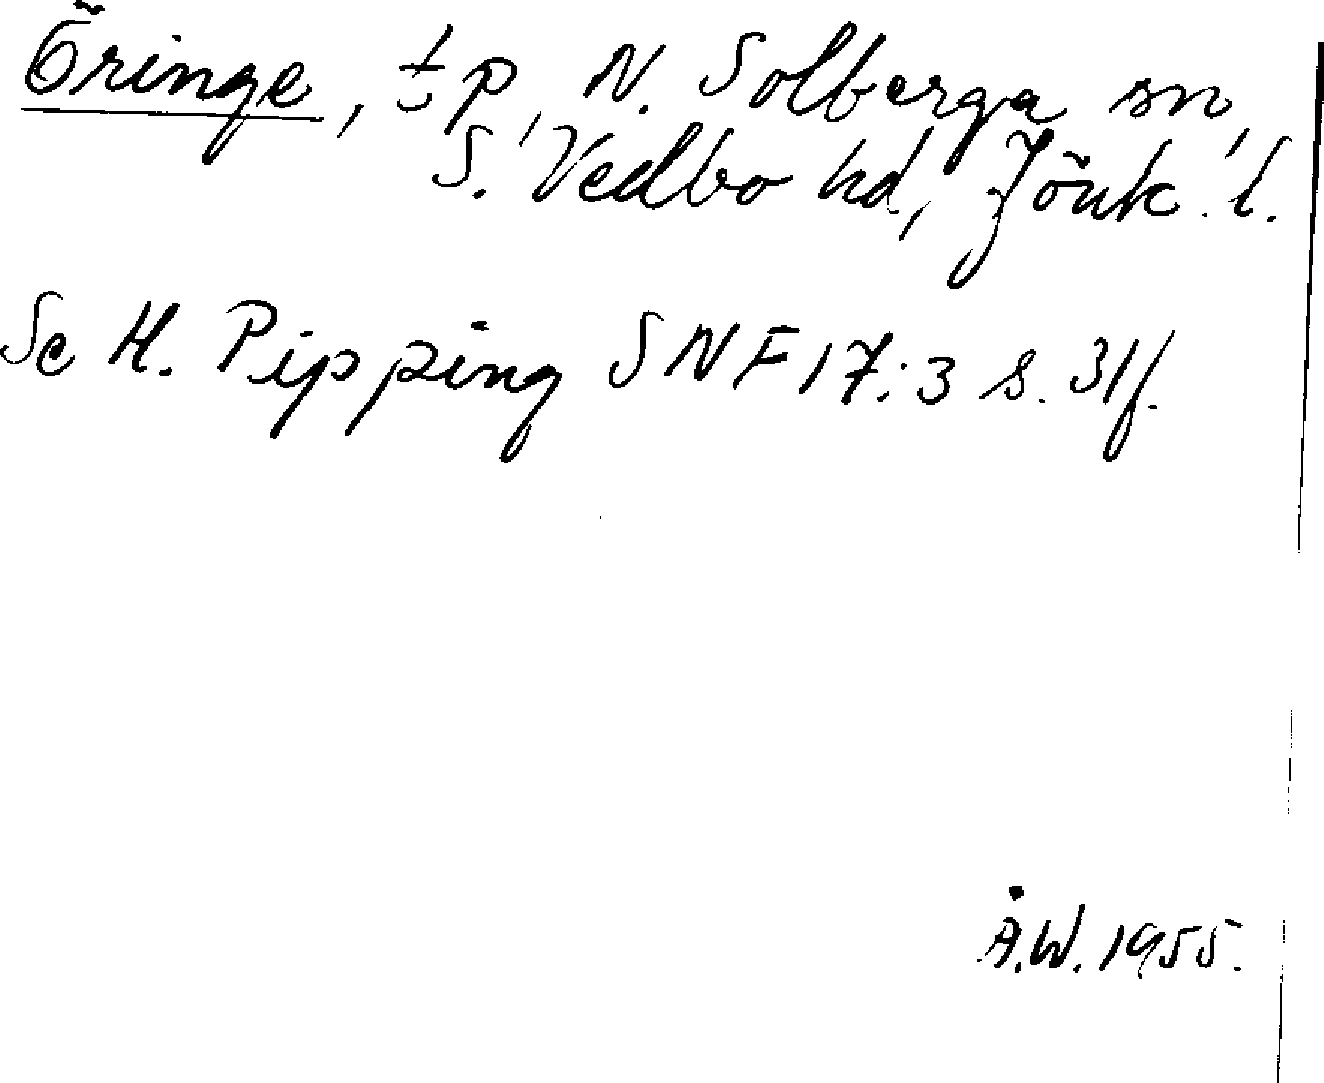 Öringe, tp, N. Solberga sn,
S. Vedbo hd, Jönk. l.
Se H. Pipping SNF 17:3 s. 31f.
Å.W. 1955.